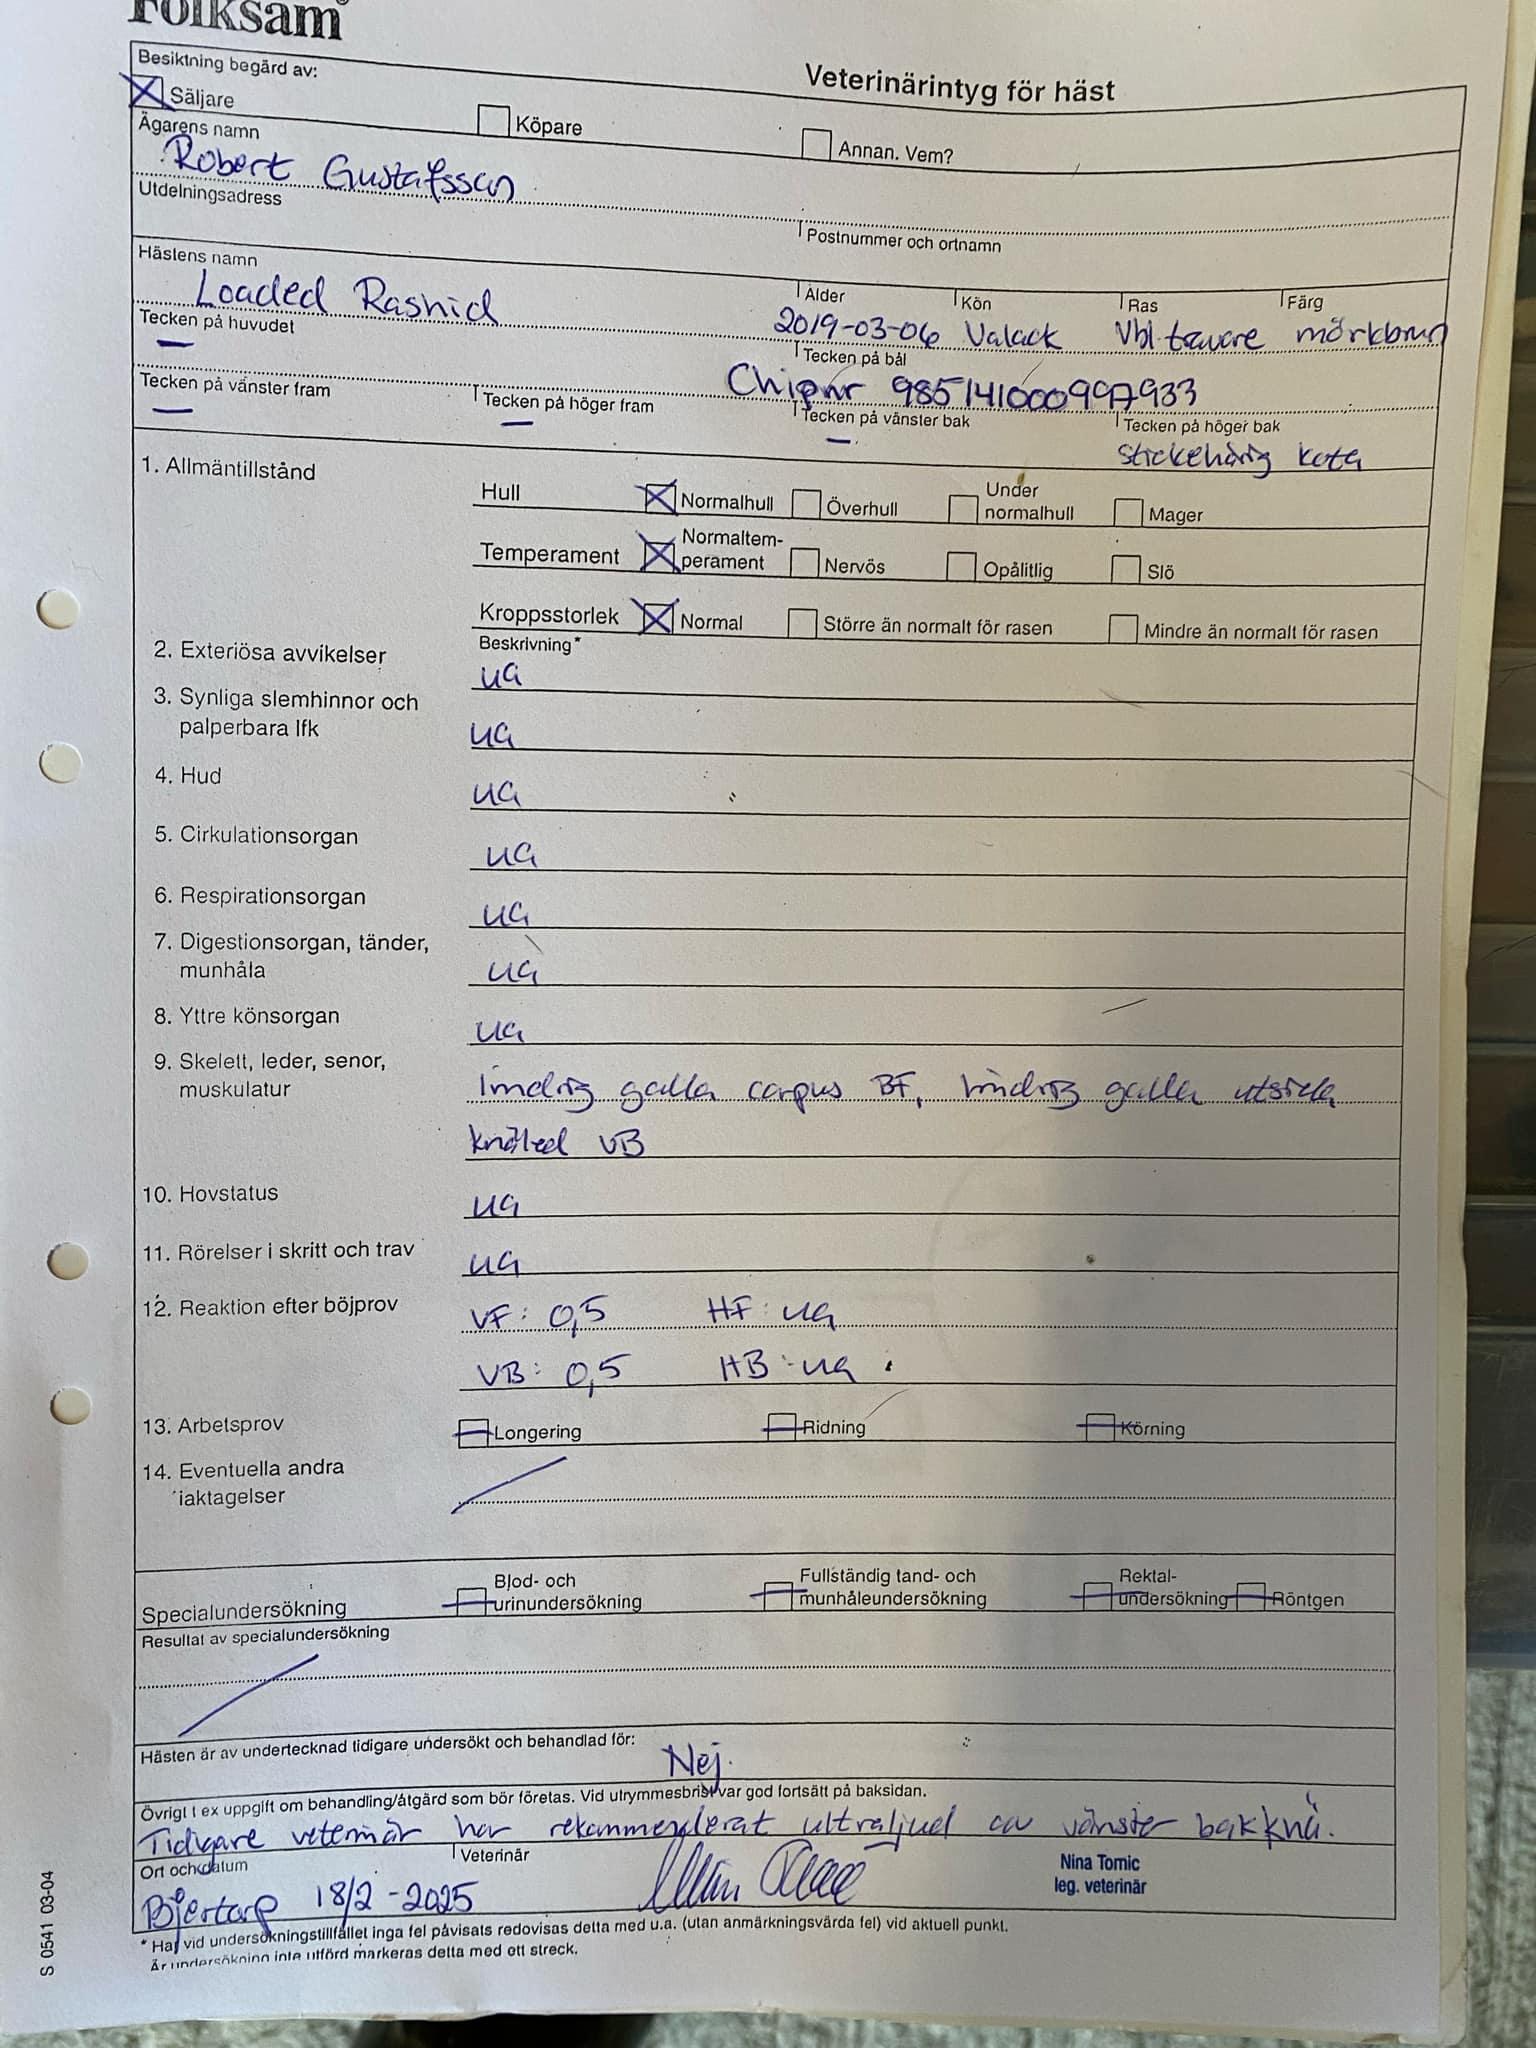 Folksam
Veterinärintyg för häst
Besiktning begärd av:
Säljare Köpare Annan. Vem?
Ägarens namn
Robert Gustafsson
Utdelningsadress Postnummer och ortnamn
Hästens namn Ålder Kön Ras Färg
Loaded Rashid 2019-03-06 Valack Vbl. travare mörkbrun
Tecken på huvudet Tecken på bål
— Chipnr 985141000997933
Tecken på vänster fram Tecken på höger fram Tecken på vänster bak Tecken på höger bak
— — — stickelhårig kota
1. Allmäntillstånd
Hull Normalhull Överhull Under normalhull Mager
Temperament Normaltem-perament Nervös Opålitlig Slö
Kroppsstorlek Normal Större än normalt för rasen Mindre än normalt för rasen
Beskrivning*
2. Exteriösa avvikelser ua
3. Synliga slemhinnor och
palperbara lfk ua
4. Hud ua
5. Cirkulationsorgan ua
6. Respirationsorgan ua
7. Digestionsorgan, tänder,
munhåla ua
8. Yttre könsorgan ua
9. Skelett, leder, senor,
muskulatur lindrig galla carpus BF, lindrig galla utsida
knäled VB
10. Hovstatus ua
11. Rörelser i skritt och trav ua
12. Reaktion efter böjprov VF: 0,5 HF: ua
VB: 0,5 HB: ua
13. Arbetsprov Longering Ridning Körning
14. Eventuella andra
iaktagelser
Specialundersökning Blod- och urinundersökning Fullständig tand- och munhåleundersökning Rektal-undersökning Röntgen
Resultat av specialundersökning
Hästen är av undertecknad tidigare undersökt och behandlad för: Nej.
Övrigt t ex uppgift om behandling/åtgärd som bör företas. Vid utrymmesbrist var god fortsätt på baksidan.
Tidigare veterinär har rekommenderat ultraljud av vänster bakknä.
Ort och datum Veterinär
Bjertorp 18/2-2025
Nina Tomic
leg. veterinär
* Har vid undersökningstillfället inga fel påvisats redovisas detta med u.a. (utan anmärkningsvärda fel) vid aktuell punkt.
Är undersökning inte utförd markeras detta med ett streck.
S 0541 03-04